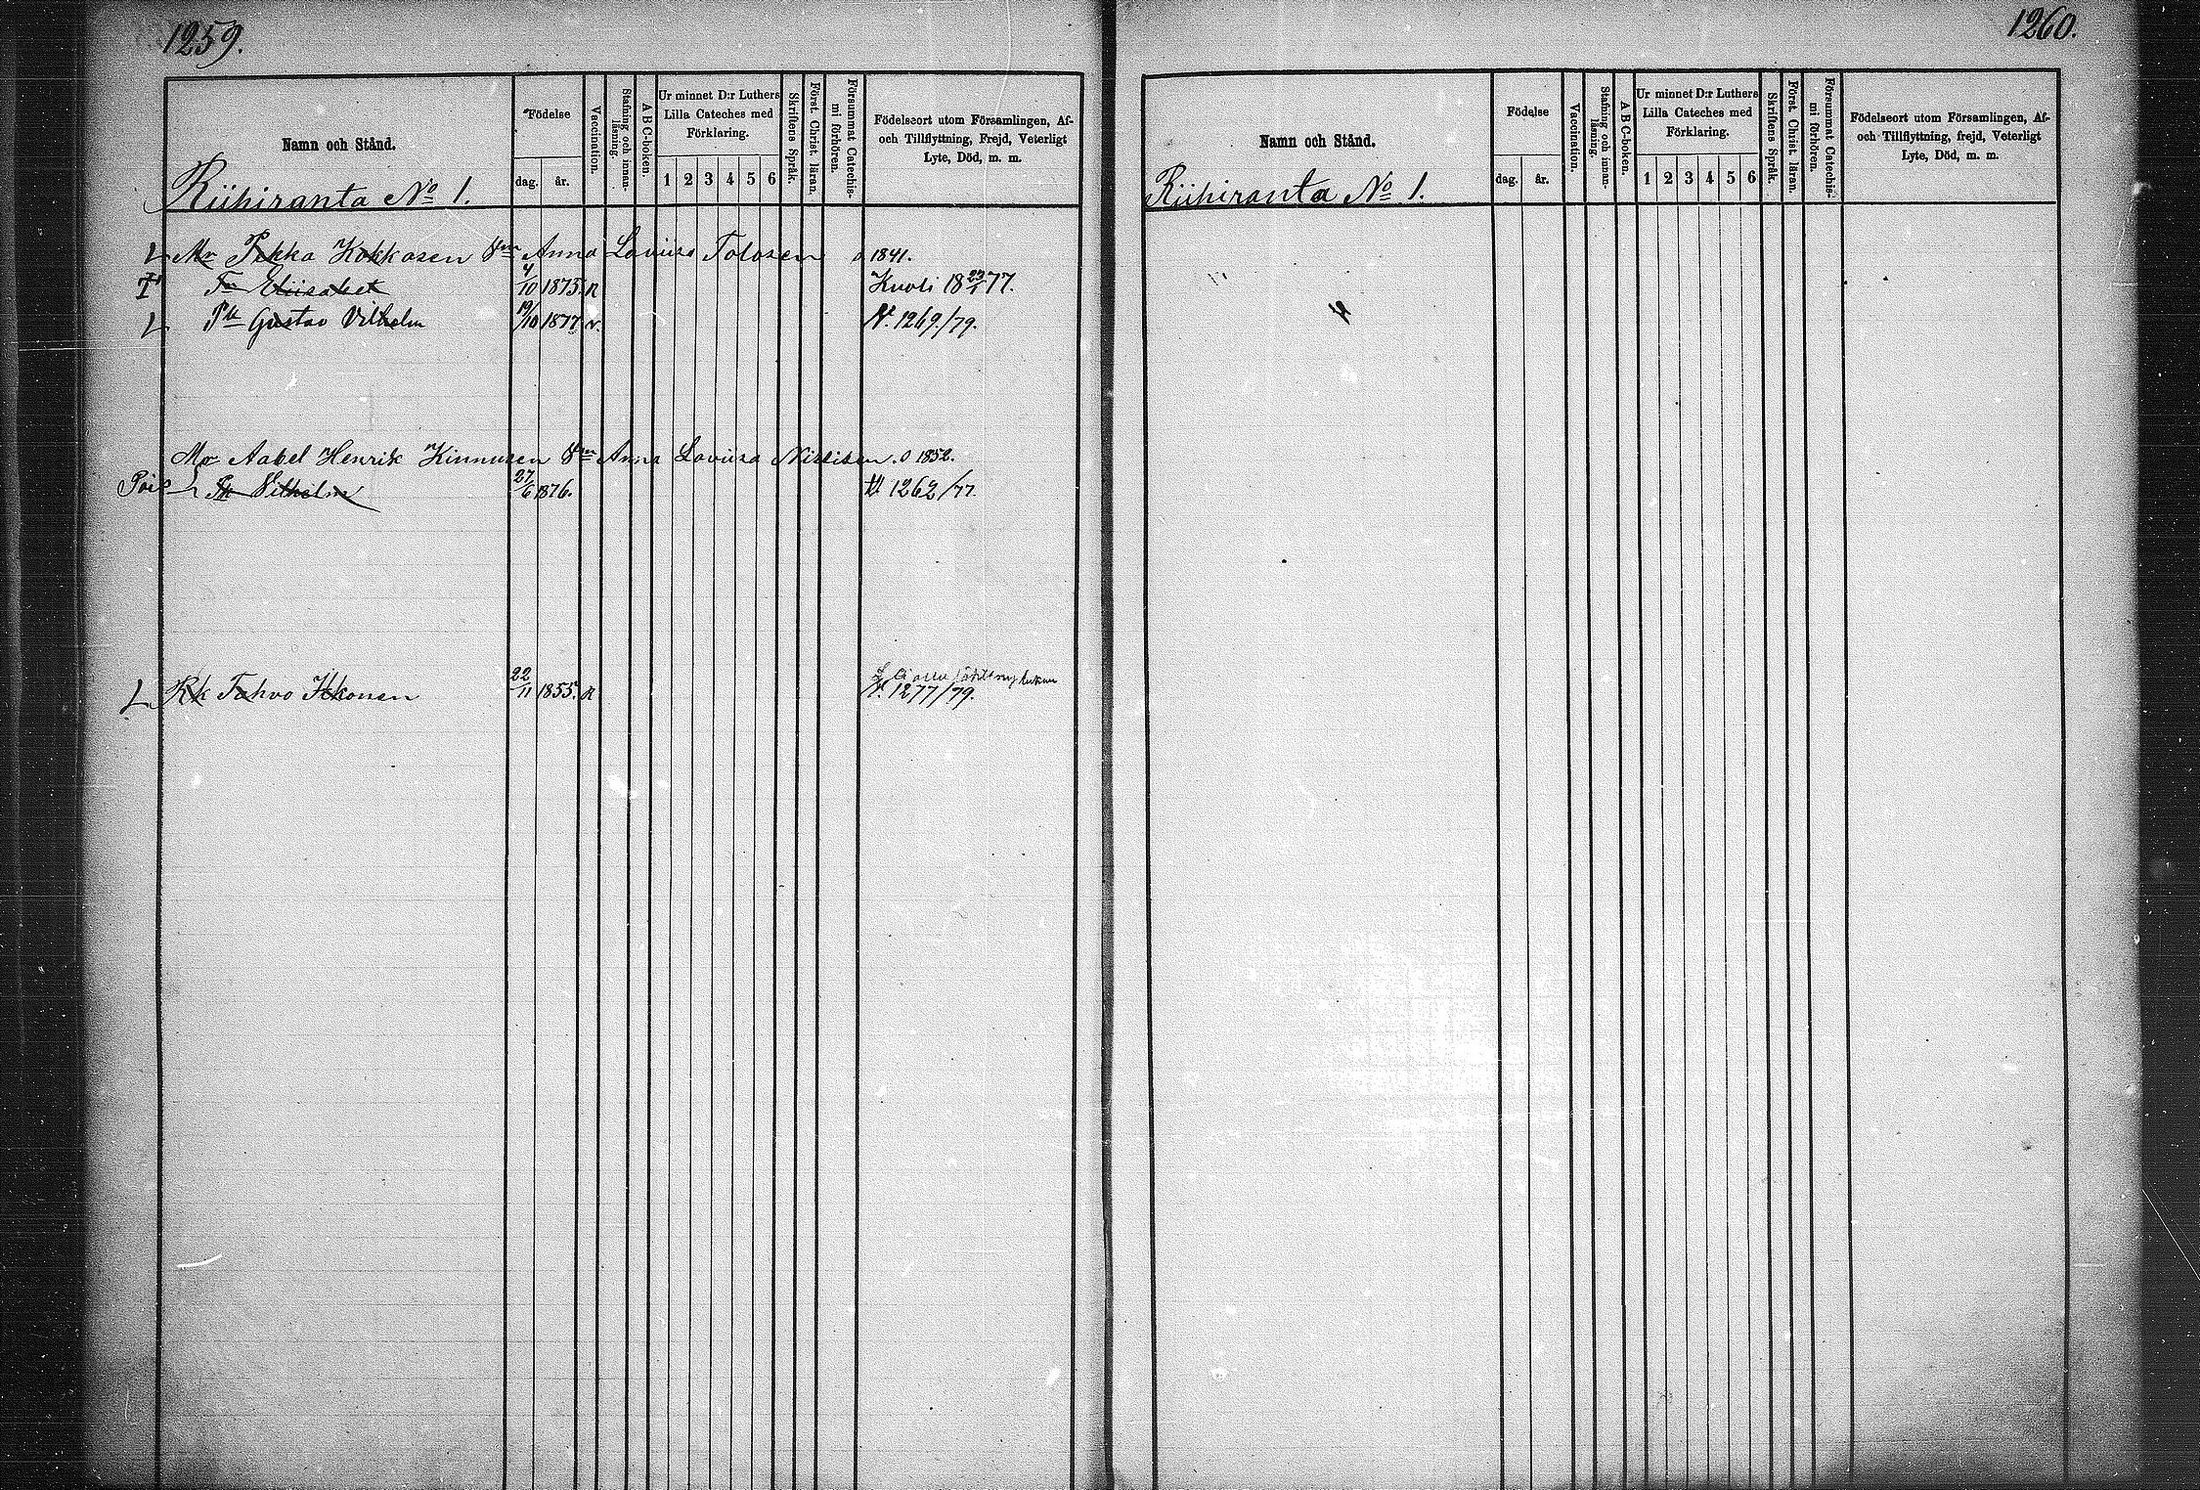 1259.
Namn och Stånd.
Födelse
dag.
år.
Vaccination.
Stafning och innan-
läsning.
A B C-boken.
Ur minnet D:r Luthers
Lilla Cateches med
Förklaring.
1 2 3 4 5 6
Skriftens Språk.
Först. Christ. läran.
Försummat Catechis-
mi förhören.
Födelseort utom Församlingen, Af-
och Tillflyttning, Frejd, Veterligt
Lyte, Död, m. m.
Riihiranta No 1.
L Mr Pekka Kokkosen Vm Anna Loviisa Tolosen o 1841.
T Tr Eliisabet 4/10 1875. R Kuoli 18 23/1 77.
L Pk Gustav Vilhelm 19/10 1877 N. V. 1269/79.
Mr Aabel Henrik Kinnusen Vm Anna Loviisa o 1852.
Pois Pk Vilhelm 27/6 1876. 1262/77.
L Rk Tahvo Ikkonen 22/11 1855. R V. 1277/79.
1260.
Namn och Stånd.
Födelse
dag.
år.
Vaccination.
Stafning och innan-
läsning.
A B C-boken.
Ur minnet D:r Luthers
Lilla Cateches med
Förklaring.
1 2 3 4 5 6
Skriftens Språk.
Först. Christ. läran.
Försummat Catechis-
mi förhören.
Födelseort utom Församlingen, Af-
och Tillflyttning, frejd, Veterligt
Lyte, Död, m. m.
Riihiranta No 1.